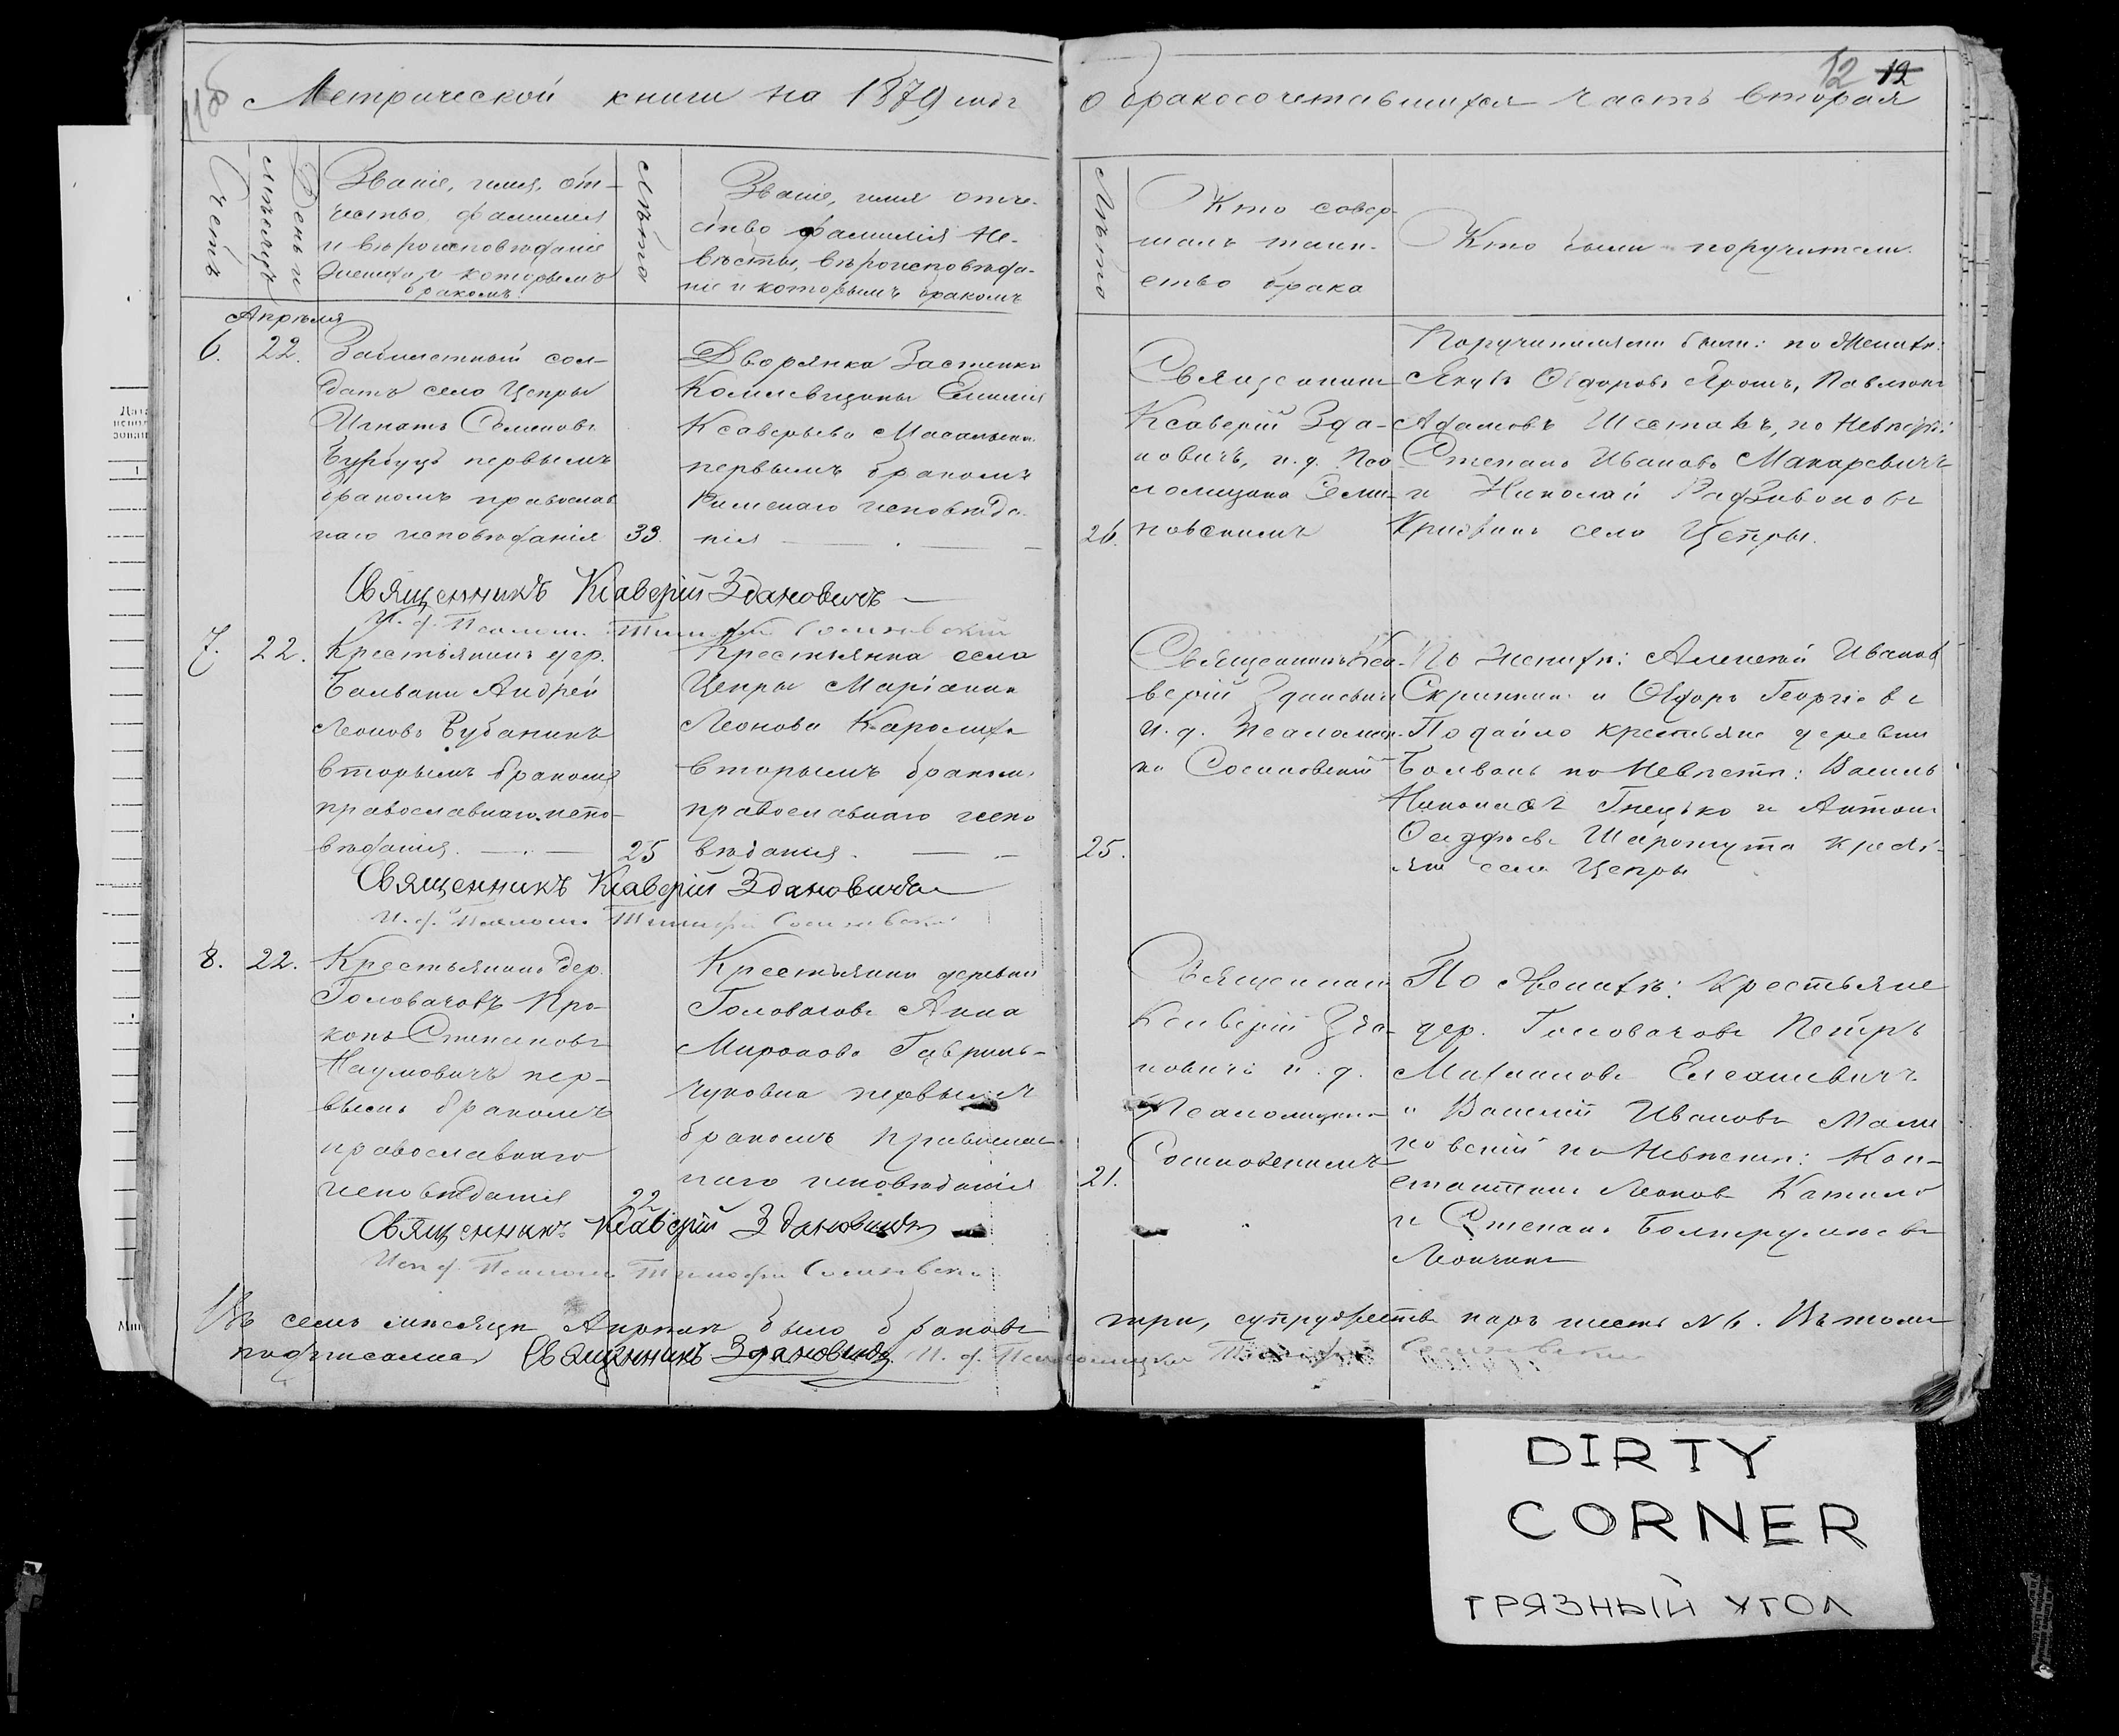 118 Метрической книги на 1879 годъ
о бракосочетавшихся часть вторая
12 12
Счетъ
День и мѣсяцъ
Званіе, имя, от-
чество, фамилія
и вѣроисповѣданіе
жениха и которымъ
бракомъ.
Лѣто
Званіе, имя отче-
ство фамилія не-
вѣсты, вѣроисповѣда-
ніе и которымъ бракомъ
Лѣто
Кто совер-
шалъ таин-
ство брака
Кто были поручители.
Апрѣля
6. 22.
сол-
датъ села Цепры
Игнатъ Семеновъ
первымъ
бракомъ православ
наго исповѣданія 33.
Дворянка Застѣнка
Емилія
Ксаверьева
первымъ бракомъ
Римскаго исповѣда-
нія
26.
Священникъ
Ксаверій Зда-
новичъ, и. д. Пса
ломщика Соси-
новскимъ
Поручителями были: по Женихѣ:
Якубъ Ѳедоровъ Ярошъ, Павлюкъ
Адамовъ Шестакъ, по Невѣстѣ:
Степанъ Ивановъ Макаревичъ
и Николай
села Цепры.
Священникъ Ксаверій Здановичъ
И. д. Псалом. Тимофей Сосиновскій
7. 22.
Крестьянинъ дер.
Балвани Андрей
Леоновъ Рубаникъ
вторымъ бракомъ
православнаго испо-
вѣданія. 25
Крестьянка села
Цепры Маріанна
Леонова
вторымъ бракомъ
православнаго испо
вѣданія.
25.
Священникъ Кса-
верій Здановичъ
и. д. Псаломщи-
ка Сосиновскій
По Женихѣ: Алексѣй Иванов
и Ѳедоръ Георгіевъ
крестьяне деревни
Болвань по Невѣстѣ: Василь
Гнецько и Антонъ
кресть-
яне села Цепры
Священникъ Ксаверій Здановичъ
И. д. Псалом. Тимофей Сосиновскій
8. 22.
Крестьянинъ дер.
Головачовъ Про-
копъ Степановъ
Наумовичъ пер-
вымъ бракомъ
православнаго
исповѣданія 22
Крестьянка деревни
Головачовъ Анна
Миронова Гаврыль-
чуковна первымъ
бракомъ православ-
наго исповѣданія
21.
Священникъ
Ксаверій Зда-
новичъ и. д.
Псаломщика
Сосиновскимъ
По Женихѣ: Крестьяне
дер. Головачовъ Петръ
и Василій Ивановъ Мали
новскій по Невѣстѣ: Кон-
стантинъ Леонов
и Степанъ
Священникъ Ксаверій Здановичъ
Исп. д. Псалом. Тимофей Сосиновскій
Въ семъ мѣсяцѣ Апрѣлѣ было браковъ три, супружеств паръ шесть № 6. Въ томъ
подписался Священникъ Здановичъ. И. д. Псаломщика Тимофей Сосиновскій
DIRTY
CORNER
ГРЯЗНЫЙ УГОЛ